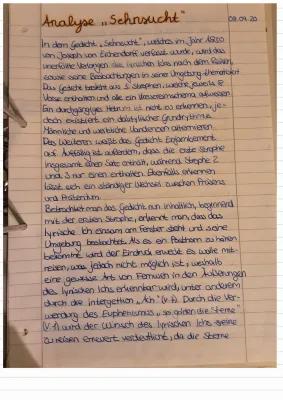 Analyse „Sehnsucht" 09.09.20
In dem Gedicht „Sehnsucht", welches im Jahr 1800
von Joseph von Eichendorff verfasst wurde, wird das
unerfüllte Verlangen des lyrischen Ichs nach dem Reisen,
sowie seine Beobachtungen in seiner Umgebung thematisiert.
Das Gedicht besteht aus 3 Strophen, welche jeweils 8
Verse enthalten und alle ein Umarmschema aufweisen.
Ein durchgängiges Metrum ist nicht zu erkennen, je-
doch existiert ein daktylischer Grundrythmus.
Männliche und weibliche Kardenzen alternieren.
Des Weiteren weißt das Gedicht Enjambement
auf. Auffällig ist außerdem, dass die erste Strophe
insgesamt einen Satz enthält, während Strophe 2
und 3 nur einen enthalten. Ebenfalls erkennen
lässt sich ein ständiger Wechsel zwischen Präsens
und Präteritum.
Betrachtet man das Gedicht nun inhaltlich, beginnend
mit der ersten Strophe, erkennt man, dass das
lyrische Ich einsam am Fenster steht und seine
Umgebung beobachtet. Als es ein Posthorn zu hören
bekommt wird der Eindruck erweckt es wolle mit-
reisen, was jedoch nicht möglich ist, weshalb
eine gewisse Art von Fernweh in den Äußerungen
des lyrischen Ichs erkennbar wird, unter anderem
durch die Interjektion „Ach" Durch die Ver-
wendung des Euphemismus „so golden die Sterne"
(V.1) wird der Wunsch des lyrischen Ichs
zu reisen erneut verdeutlicht, da die Sterne